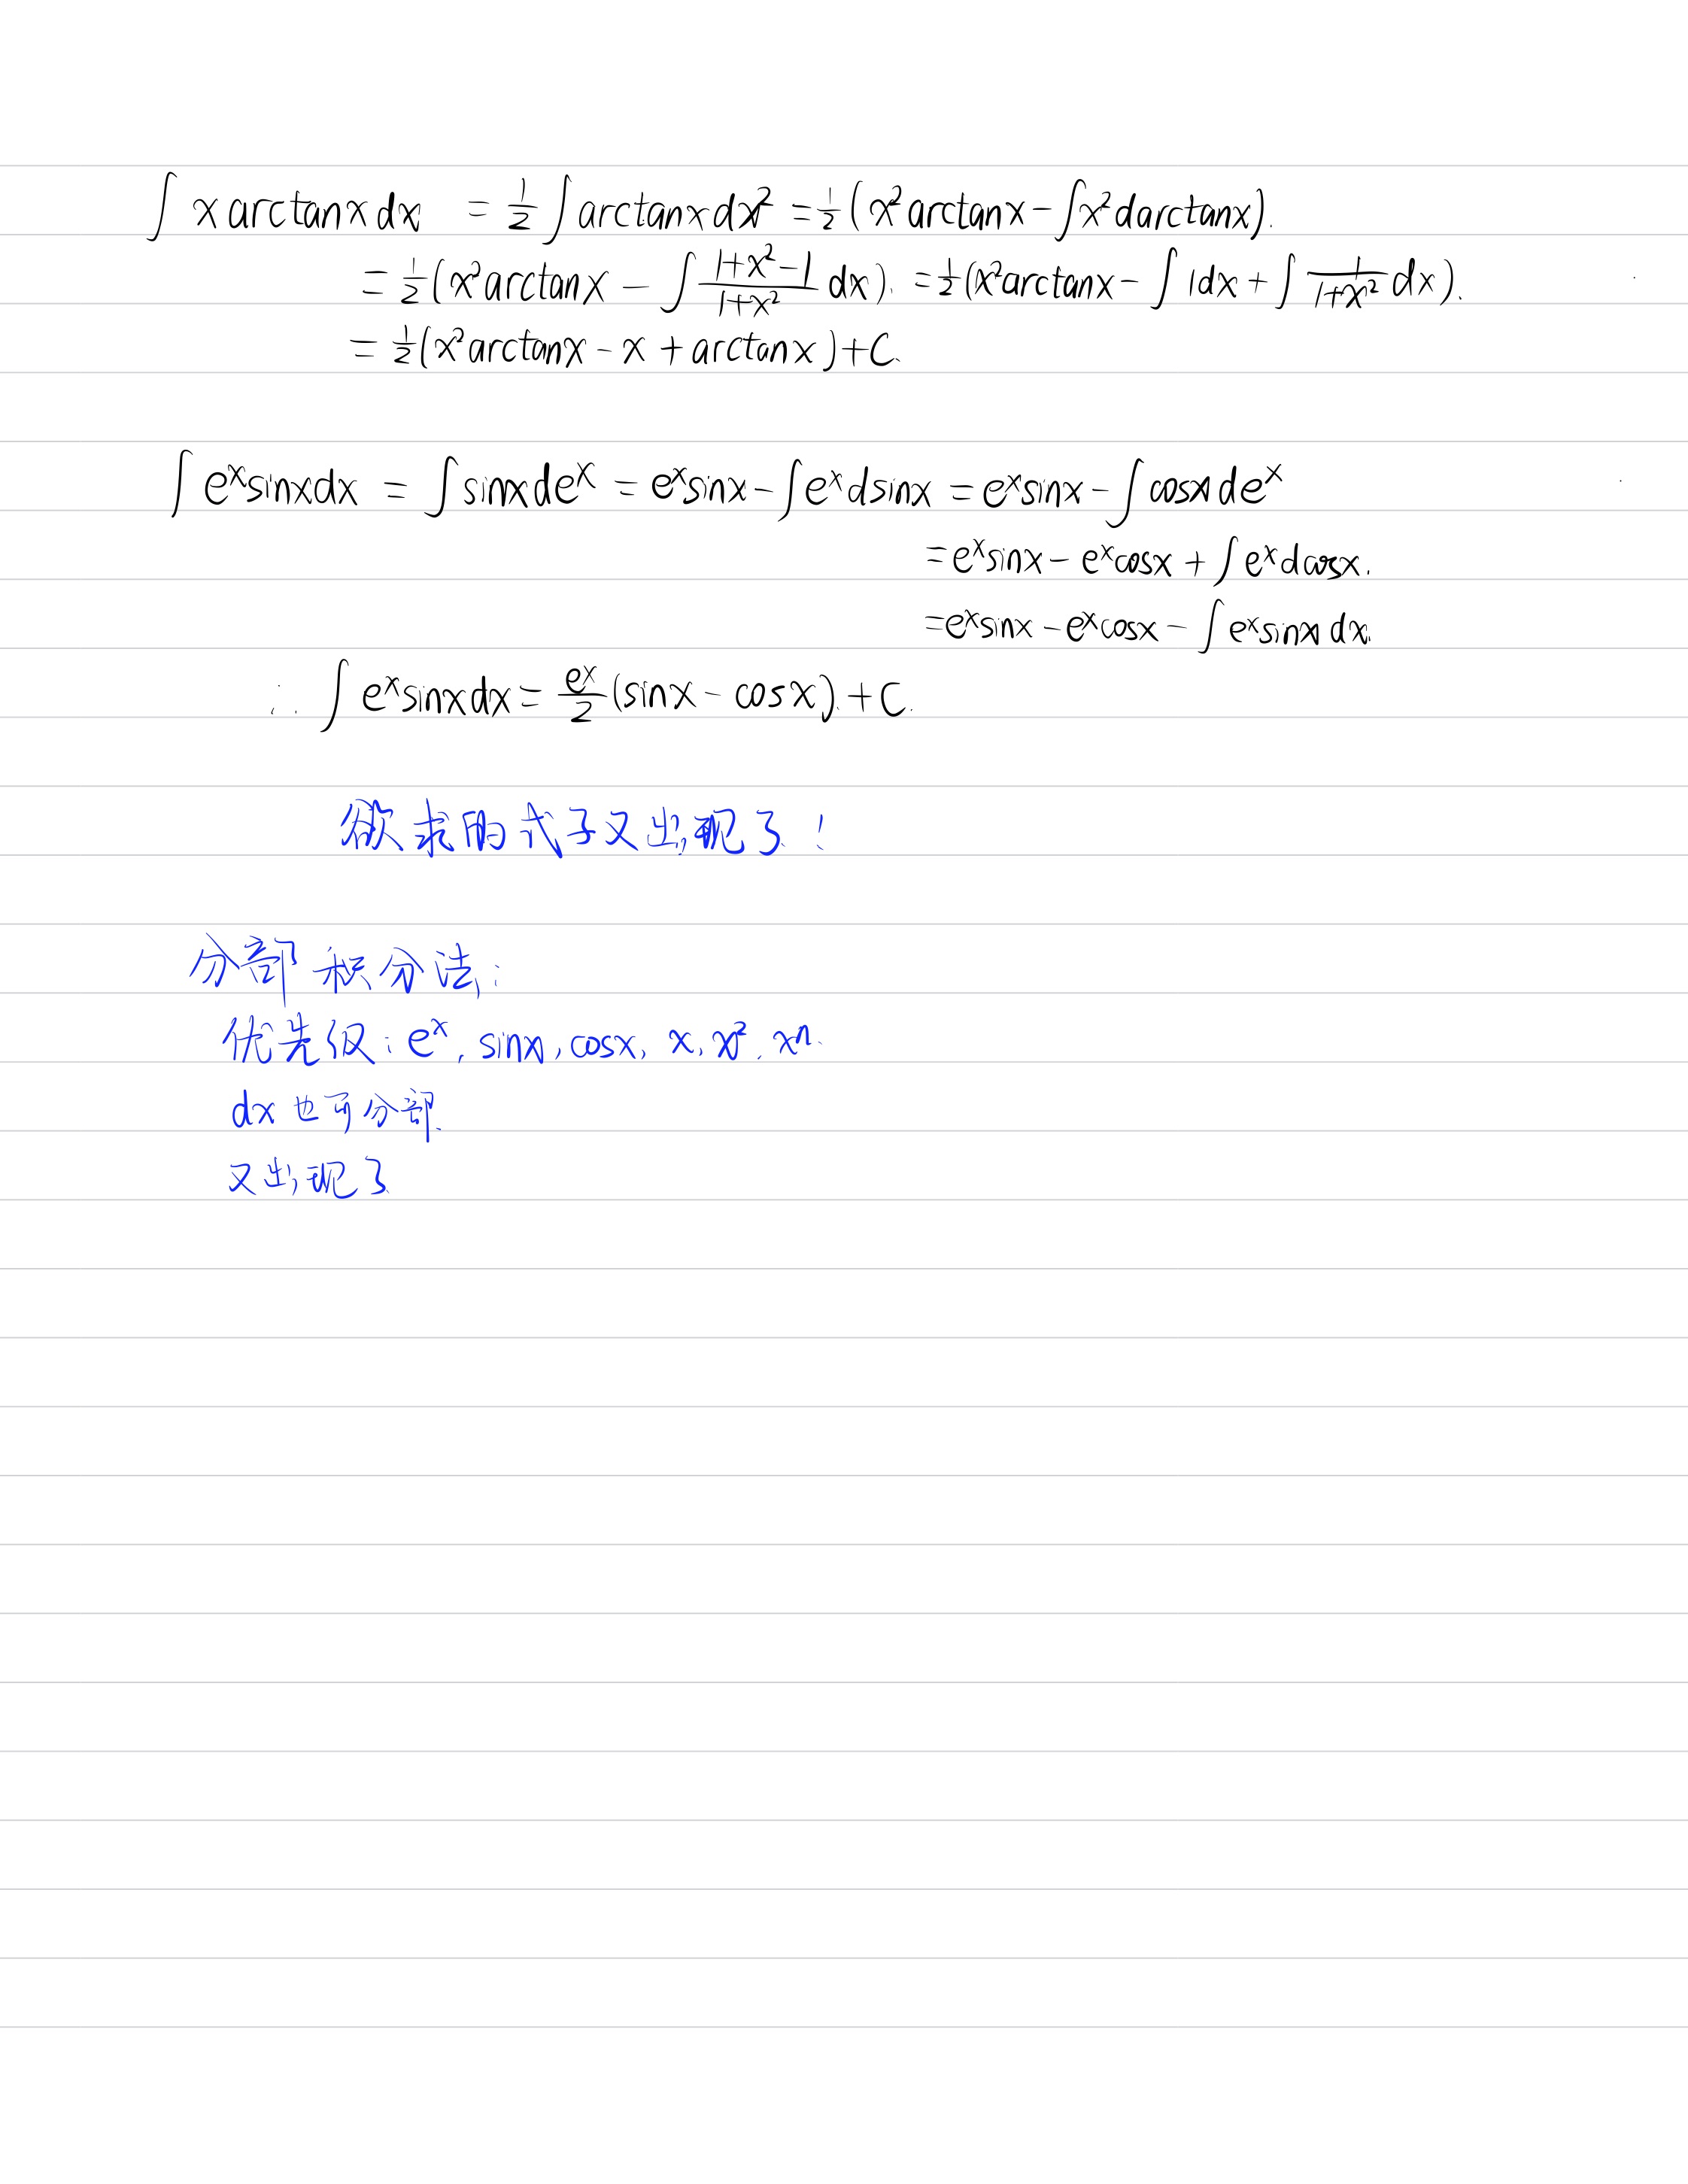 ∫ x arctanx dx = 1/2 ∫ arctanx dx² = 1/2 (x² arctanx - ∫x² darctanx).
= 1/2 (x² arctanx - ∫ (1+x²-1)/(1+x²) dx). = 1/2 (x² arctanx - ∫ 1dx + ∫ 1/(1+x²) dx).
= 1/2 (x² arctanx - x + arctanx) + C.
∫ eˣsinxdx = ∫ sinxdeˣ = eˣsinx - ∫eˣdsinx = eˣsinx - ∫ cosx deˣ
= eˣsinx - eˣcosx + ∫ eˣdcosx.
= eˣsinx - eˣcosx - ∫ eˣsinx dx.
∴ ∫ eˣsinxdx = eˣ/2 (sinx - cosx). + C.
欲求的式子又出现了!
分部积分法:
优先级: eˣ, sinx, cosx, x, x², xⁿ.
dx 也可分部.
又出现了